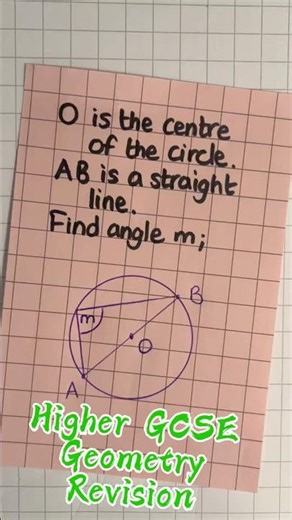 O is the centre
of the circle.
AB is a straight
line.
Find angle m;
B
m
O
A
Higher GCSE
Geometry
Revision